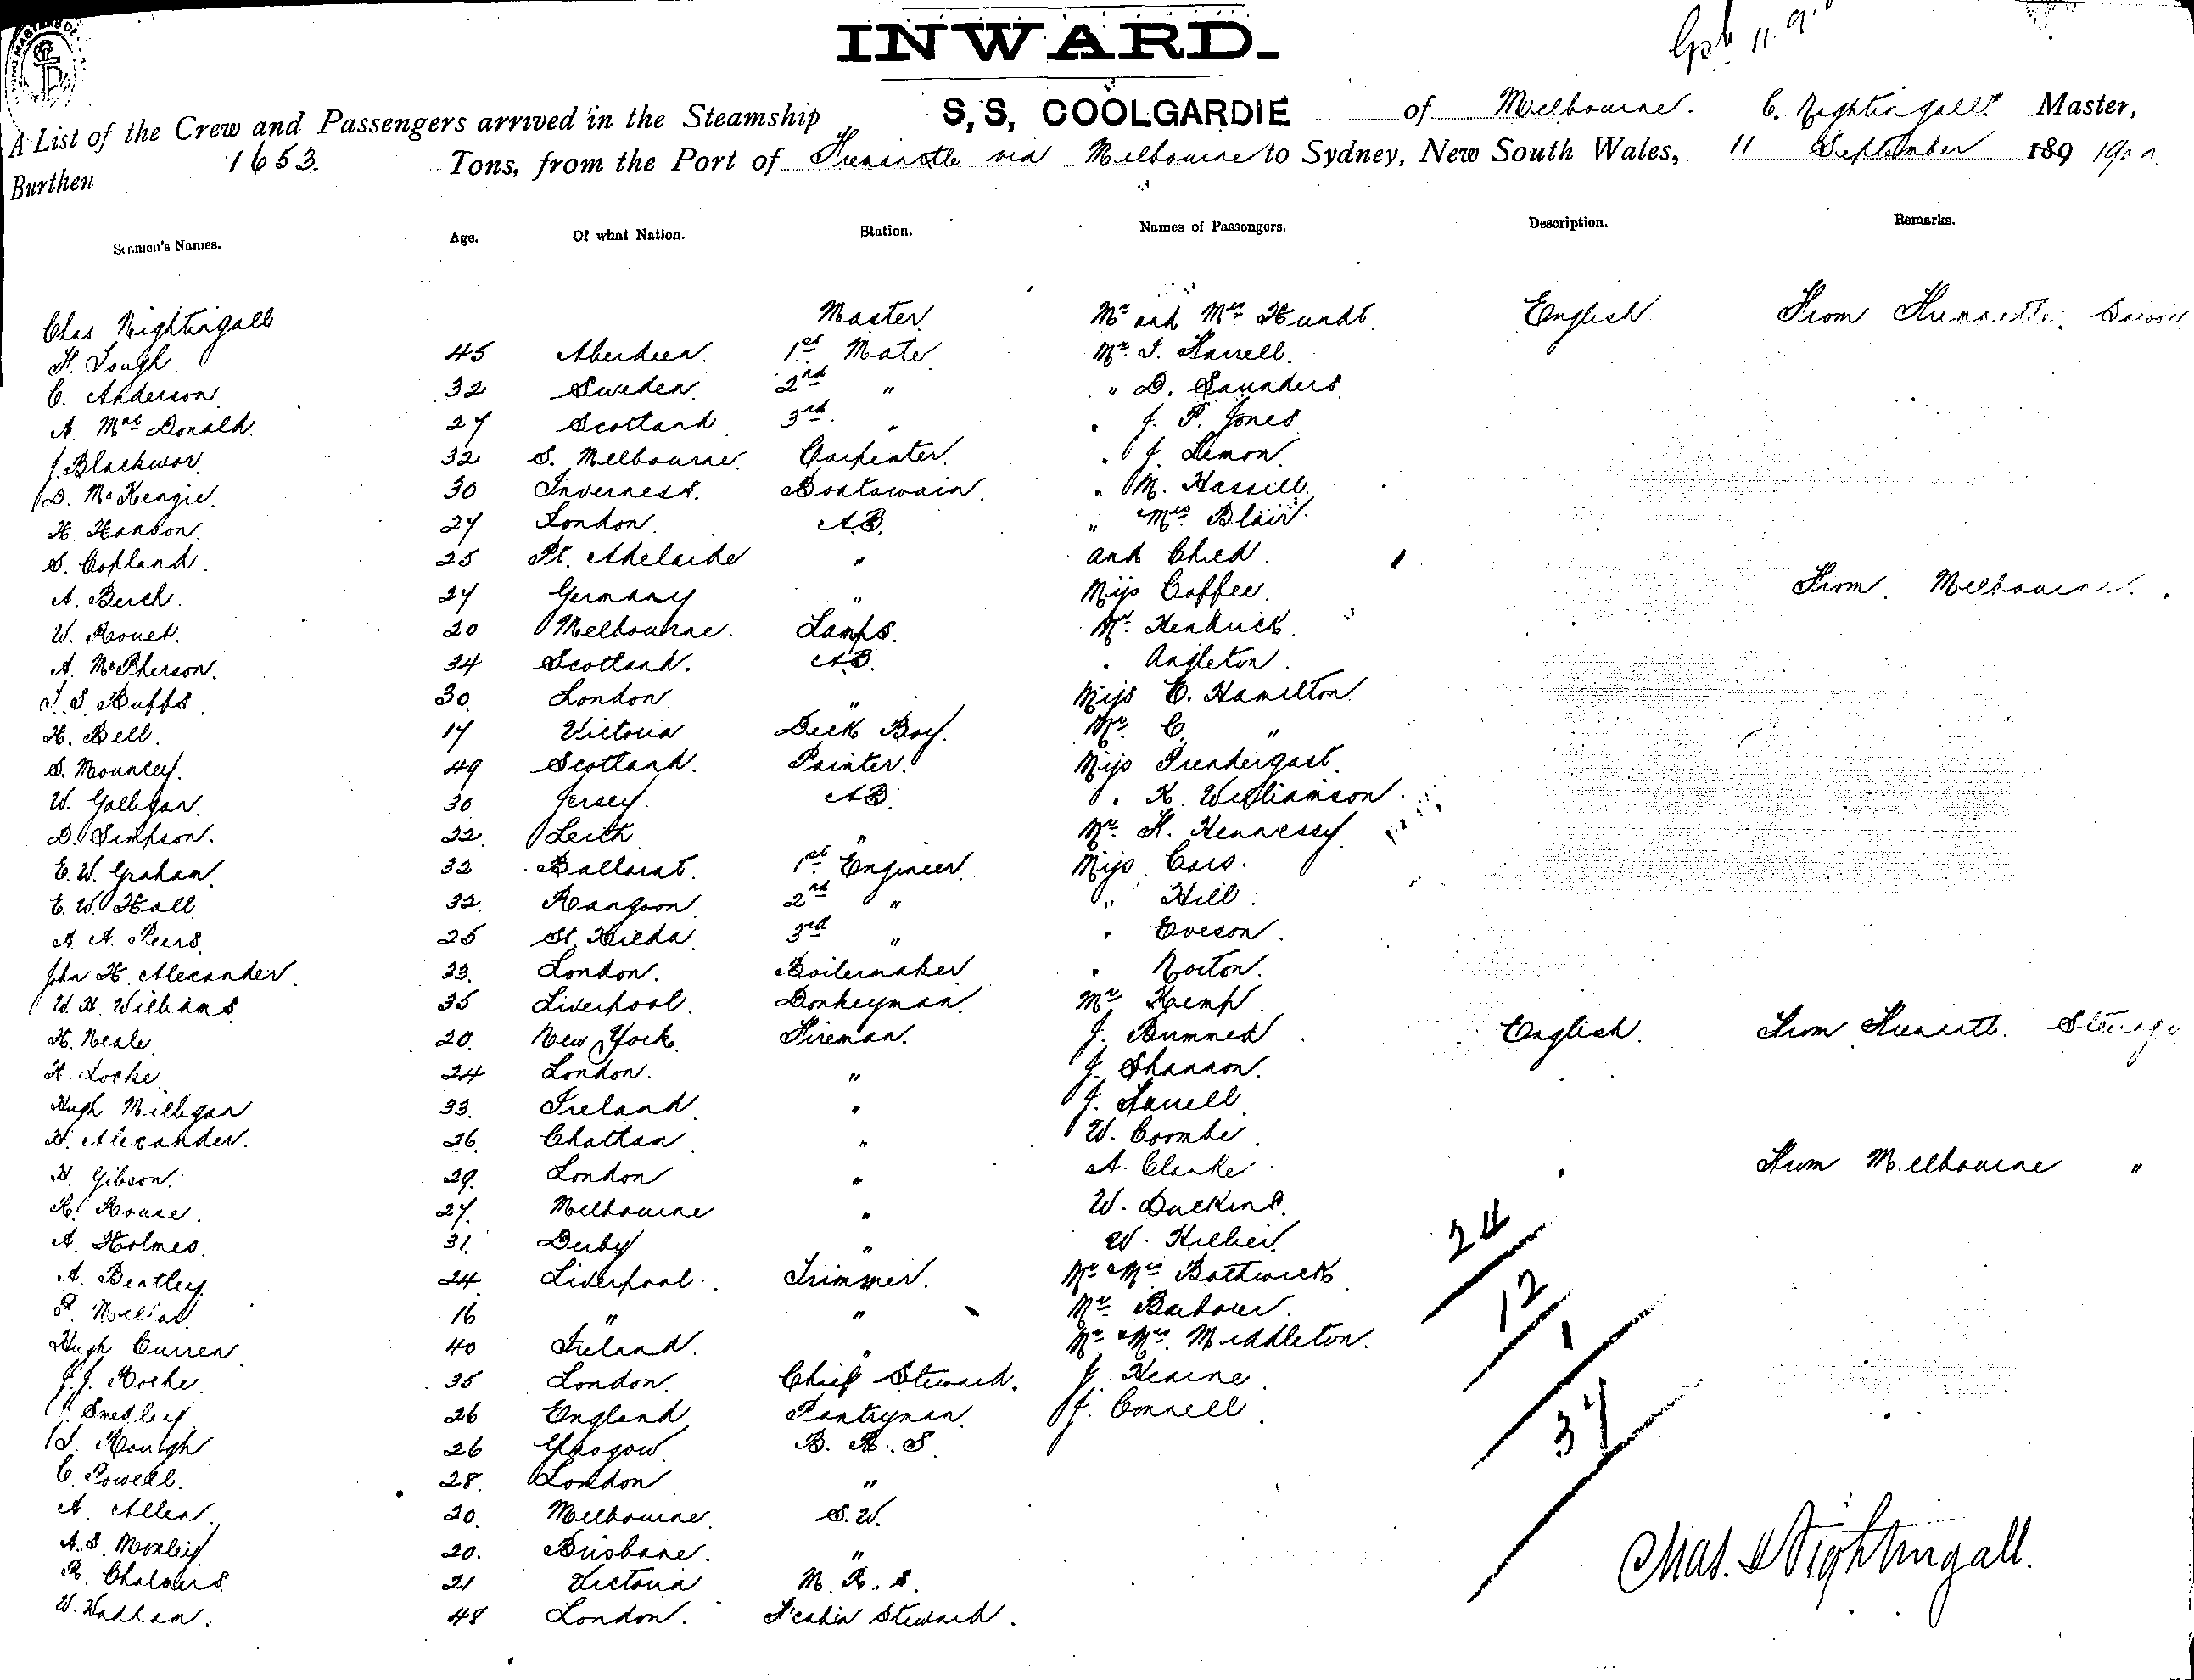 INWARD.
S.S. COOLGARDIE of Melbourne. C. Nightingall Master,
A List of the Crew and Passengers arrived in the Steamship
Burthen 1653. Tons, from the Port of Fremantle via Melbourne to Sydney, New South Wales, 11 September 189 1900.
Seamen's Names. Age. Of what Nation. Station. Names of Passengers. Description. Remarks.
Chas Nightingall Master Mr and Mrs Hundt English From Fremantle. Saloon
H. Tough. 45 Aberdeen. 1st Mate Mr. T. Farrell.
C. Anderson. 32 Sweden. 2nd " " D. Saunders
A. Mac Donald. 27 Scotland 3rd. " . J. P. Jones
J. Blackwor. 32 S. Melbourne. Carpenter. . J. Lemon.
D. McKenzie. 30 Inverness. Boatswain. . M. Hassell.
H. Hanson. 27 London. A.B. " Mrs Blair.
S. Copland. 25 Pt. Adelaide " and Child.
A. Berch. 27 Germany " Miss Coffee. From Melbourne.
W. Rouet. 20 Melbourne. Lamps. Mr. Kendrick.
A. McPherson. 34 Scotland. A.B. . Angleton.
T. S. Buffs. 30. London. " Miss C. Hamilton
H. Bell. 17 Victoria Deck Boy. Mr. C. "
S. Mouncey. 49 Scotland. Painter. Miss Prendergast.
W. Galligan. 30 Jersey. A.B. . K. Williamson.
D. Simpson. 22. Leith " Mr. H. Hennessey.
E. W. Graham. 32 Ballarat. 1st Engineer. Miss Cars.
E. W. Hall. 32. Rangoon. 2nd " " Hill.
A. A. Peers. 25 St. Kilda. 3rd " . Eveson.
John H. Alexander. 33. London. Boilermaker . Norton.
W. H. Williams 35 Liverpool. Donkeyman. Mr Kemp
H. Neale 20. New York. Fireman. J. Bummed English. From Fremantle. Steerage
H. Locke 24 London. " J. Shannon.
Hugh Milligan 33. Ireland " J. Farrell
H. Alexander. 26. Chattan " W. Coombe.
H. Gibson. 29. London " A. Clarke. From Melbourne "
R. Rouse. 27. Melbourne " W. Duckins.
A. Holmes. 31. Derby " W. Hillier. 24
A. Bentley. 24. Liverpool. Trimmer. Mr & Mrs Bothwick
16 " " Mr Barbour. 12
Hugh Curren 40 Ireland. " Mr & Mrs. Middleton. 1
J. J. Roche. 35 London. Chief Steward. J. Hearne.
J. Smedley 26 England Pantryman. J. Connell. 37
J. Rough 26 Glasgow. B. R. S.
C. Powell. 28. London "
A. Allen. 20. Melbourne. S. W.
A. S. Moxley 20. Brisbane. "
R. Chalmers. 21 Victoria M. R. S. Chas. Nightingall.
W. Wadham. 48 London. F'cabin Steward.